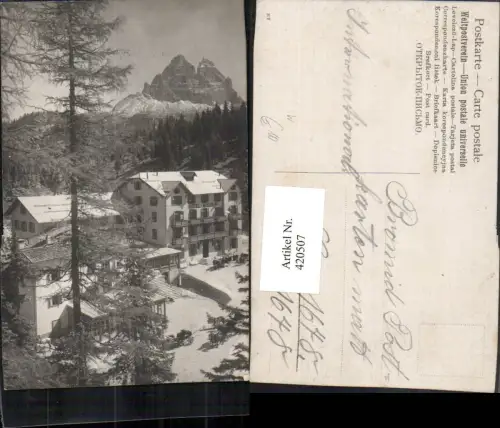 Postkarte — Carte postale
Weltpostverein — Union postale universelle
Levelező-Lap — Cartolina postale — Tarjeta postal
Correspondenzkarte — Karta korespondencyjna
Korespondenční lístek — Briefkaart — Dopisnice
Brefkort — Post card.
ОТКРЫТОЕ ПИСЬМО.
Bromid Post-
karton matt
1678
1678
Artikel Nr.
420507